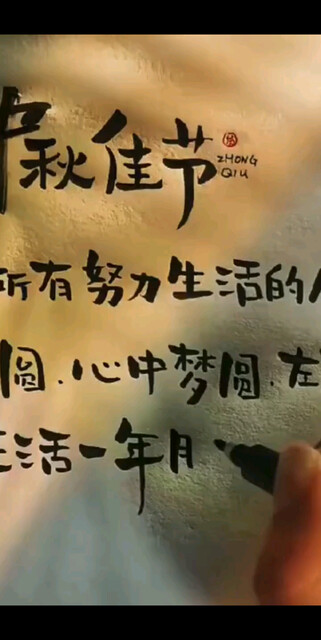 中秋佳节
ZHONG
QIU
所有努力生活的人
圆.心中梦圆.在
生活一年月